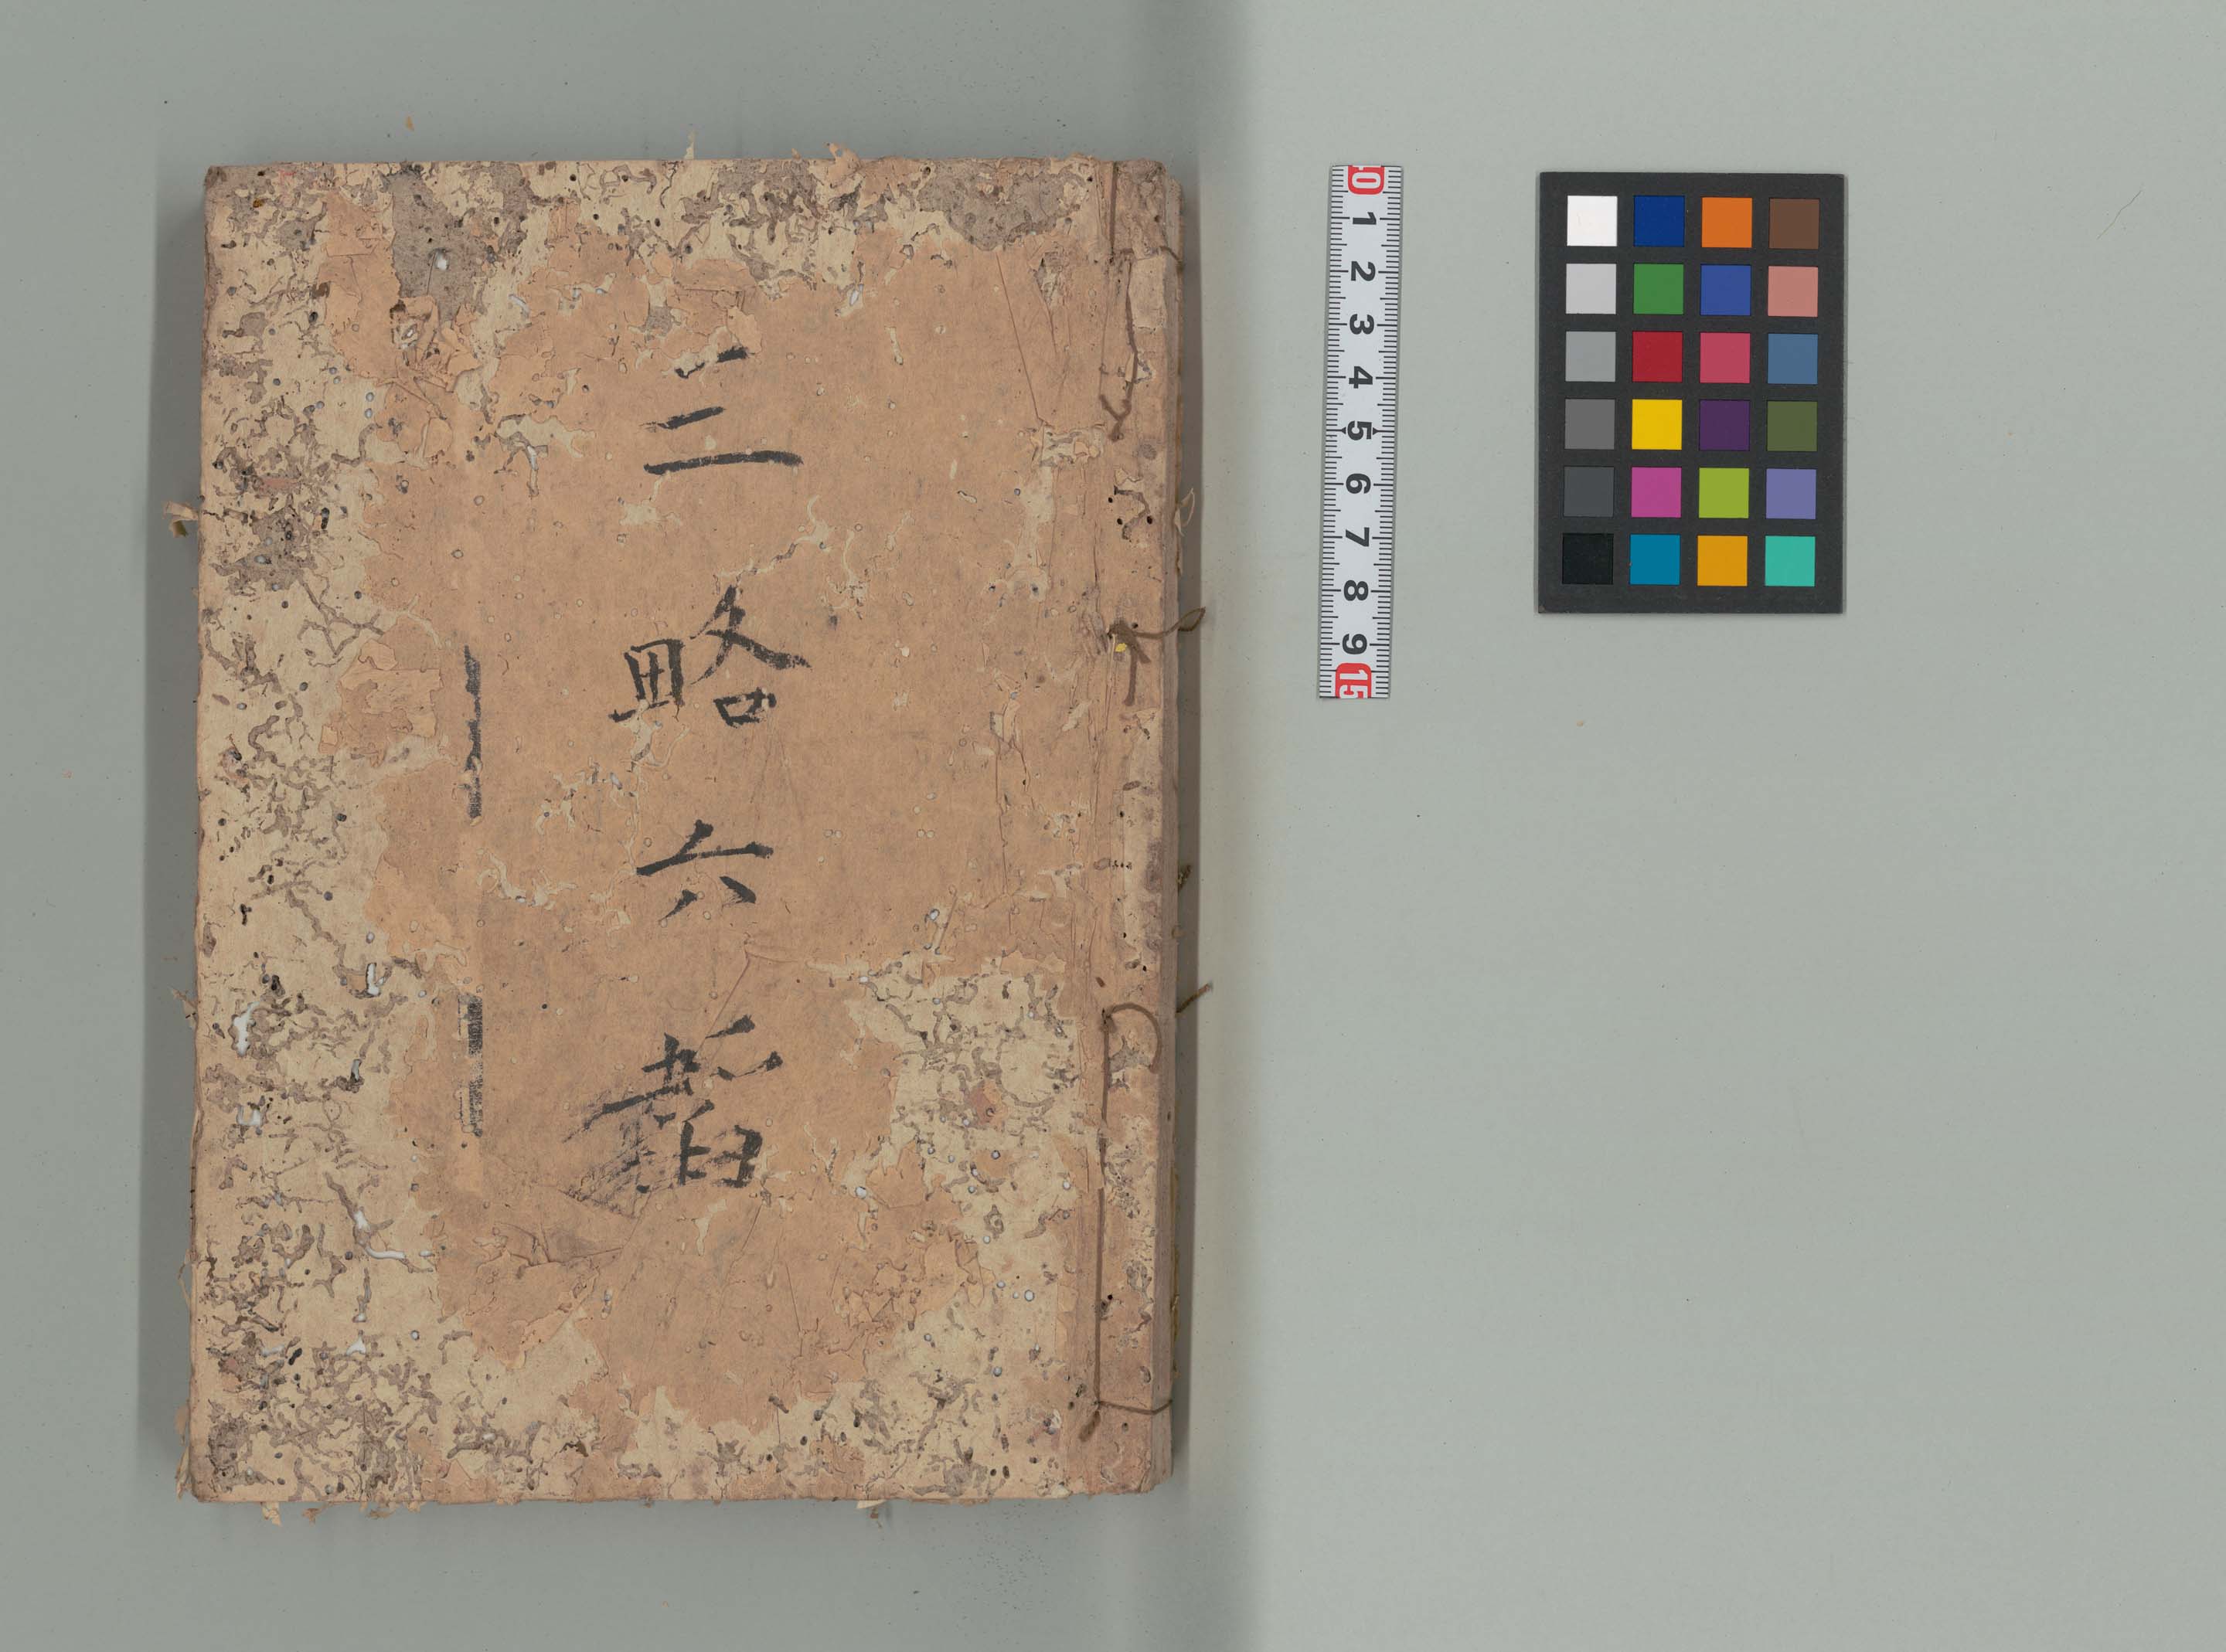 三略六韜
0 1 2 3 4 5 6 7 8 9